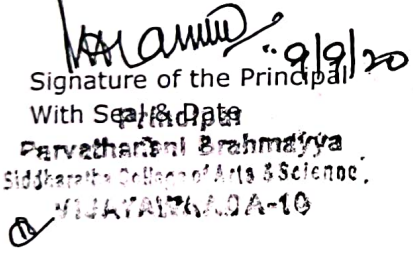 9/9/20
Signature of the Principal
With Seal & Date
Principal
Parvathaneni Brahmayya
Siddhartha College of Arts & Science.
VIJAYAWADA-10